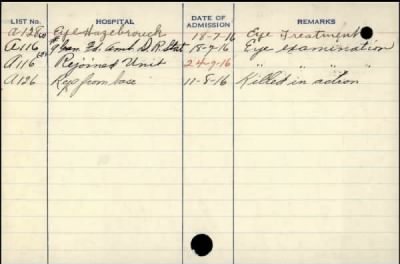 LIST NO. HOSPITAL DATE OF ADMISSION REMARKS
A128 Eye Hazebrouck 18-7-16 Eye Treatment
A116 Gen. Fd. Amb. D.R. Stat 18-7-16 Eye examination
A116 Rejoined Unit 24-7-16 " " "
A126 Rep from base 11-8-16 Killed in action